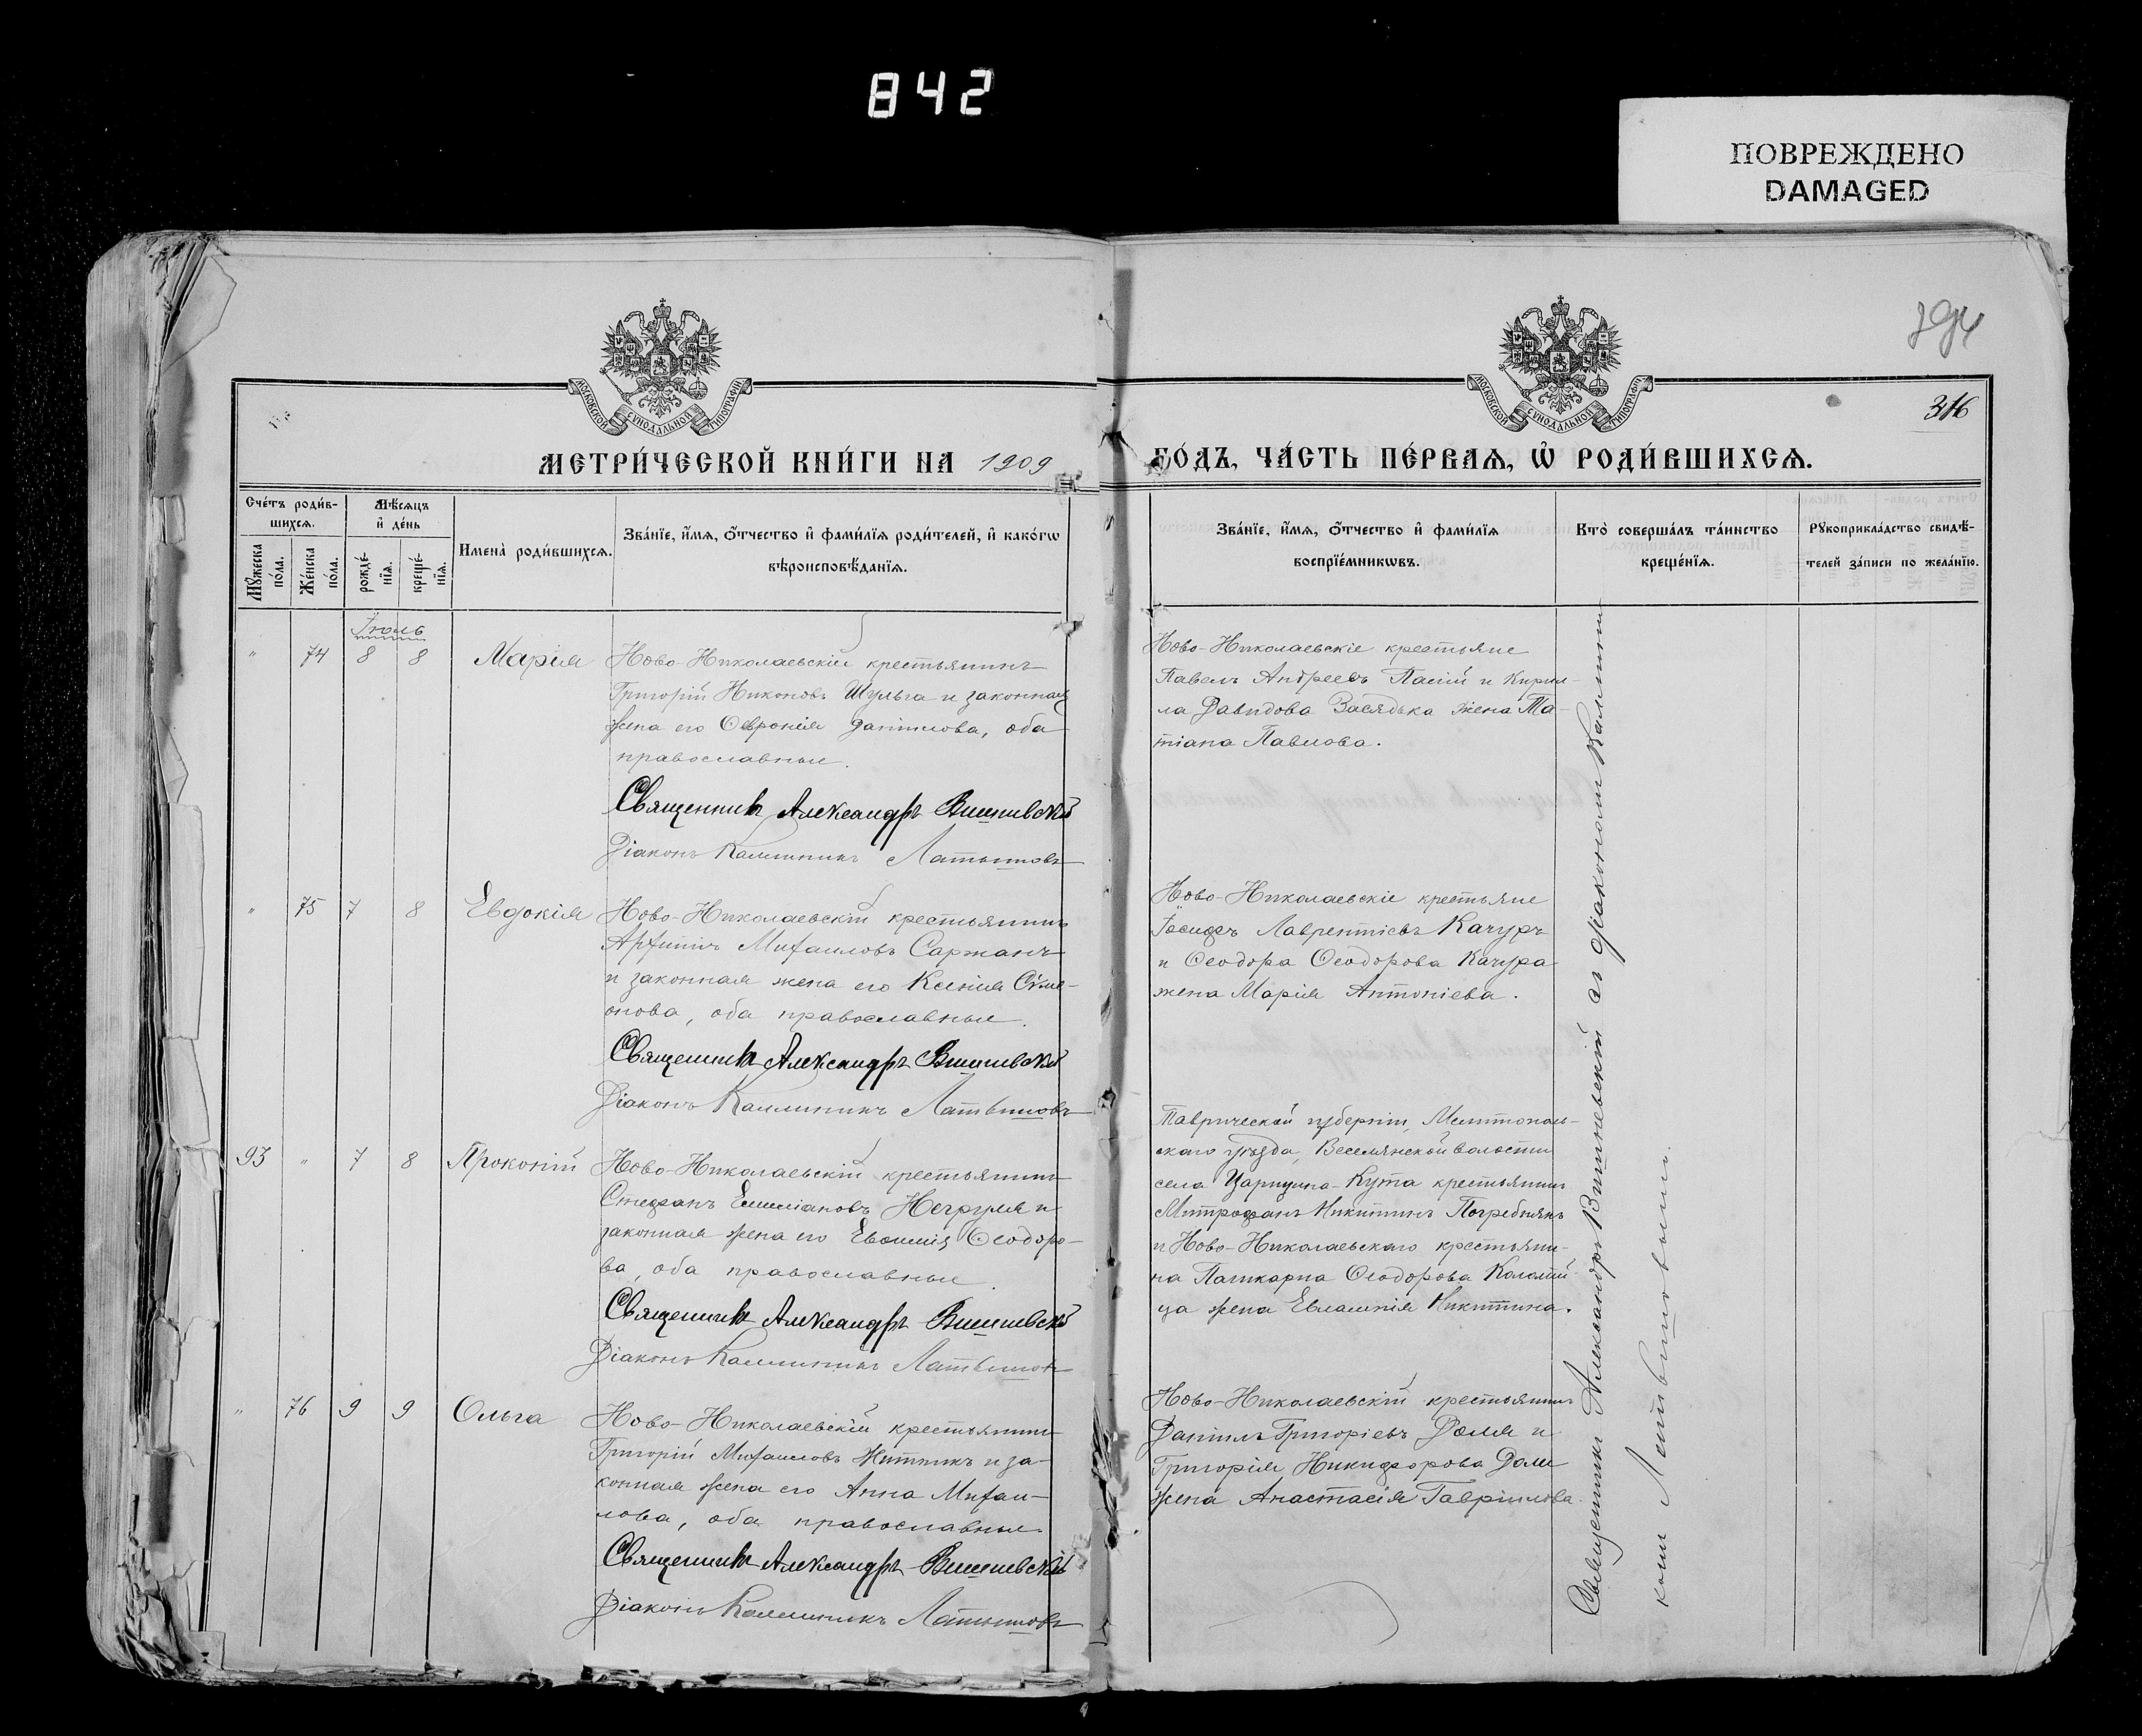 842
ПОВРЕЖДЕНО
DAMAGED
МОСКОВСКОЙ СѴНОДАЛЬНОЙ ТИПОГРАФІИ
МОСКОВСКОЙ СѴНОДАЛЬНОЙ ТИПОГРАФІИ
316
МЕТРИ́ЧЕСКОЙ КНИ́ГИ НА 1909
ГО́ДЪ, ЧА́СТЬ ПЕ́РВАЯ, Ѡ҆ РОДИ́ВШИХСЯ.
Сче́тъ роди́в-
шихся.
Мѣ́сяцъ
и҆ де́нь
Мꙋ́жеска по́ла.
Же́нска по́ла.
рожде́-
нїя.
креще́-
нїя.
Имена̀ роди́вшихся.
Зва́нїе, и҆́мя, ѻ҆́тчество и҆ фами́лїя роди́телей, и҆ како́гѡ
вѣроисповѣ́данїя.
Зва́нїе, и҆́мя, ѻ҆́тчество и҆ фами́лїя
воспрїе́мникѡвъ.
Кто̀ соверша́лъ та́инство
креще́нїя.
Рꙋкоприкла́дство свидѣ́-
телей за́писи по жела́нїю.
Іюль
" 74 8 8 Марія
Ново-Николаевскій крестьянинъ
Григорій Никоновъ Шульга и законная
жена его Февронія Даніилова, оба
православные.
Священникъ Александръ Вишневскій
Діаконъ Каллиникъ Латышовъ
Ново-Николаевскіе крестьяне
Павелъ Андреевъ Палій и Кирил-
ла Давидова Засядька жена Та-
тіана Павлова.
" 75 7 8 Евдокія
Ново-Николаевскій крестьянинъ
Михаиловъ Саржанъ
и законная жена его Ксенія Симе-
онова, оба православные.
Священникъ Александръ Вишневскій
Діаконъ Каллиникъ Латышовъ
Ново-Николаевскіе крестьяне
Іосифъ Лаврентіевъ Качуръ
и Ѳеодора Ѳеодорова Качура
жена Марія Антоніева.
93 " 7 8 Прокопій
Ново-Николаевскій крестьянинъ
Стефанъ Емиліановъ Негруля и
законная жена его Евфимія Ѳеодоро-
ва, оба православные.
Священникъ Александръ Вишневскій
Діаконъ Каллиникъ Латышовъ
Таврической губерніи, Мелитополь-
скаго уѣзда, Веселянской волости
села Царицына-Кута крестьянинъ
Митрофанъ Никитинъ Погребнякъ
и Ново-Николаевскаго крестьяни-
на Поликарпа Ѳеодорова Коломій-
ца жена Евлампія Никитина.
" 76 9 9 Ольга
Ново-Николаевскій крестьянинъ
Григорій Михаиловъ Нитникъ и за-
конная жена его Анна Михаи-
лова, оба православные.
Священникъ Александръ Вишневскій
Діаконъ Каллиникъ Латышовъ
Ново-Николаевскій крестьянинъ
Даніилъ Григоріевъ Доля и
Григорія Никифорова Доли
жена Анастасія Гавріилова.
Священникъ Александръ Вишневскій съ діакономъ Каллини-
комъ Латышовымъ.